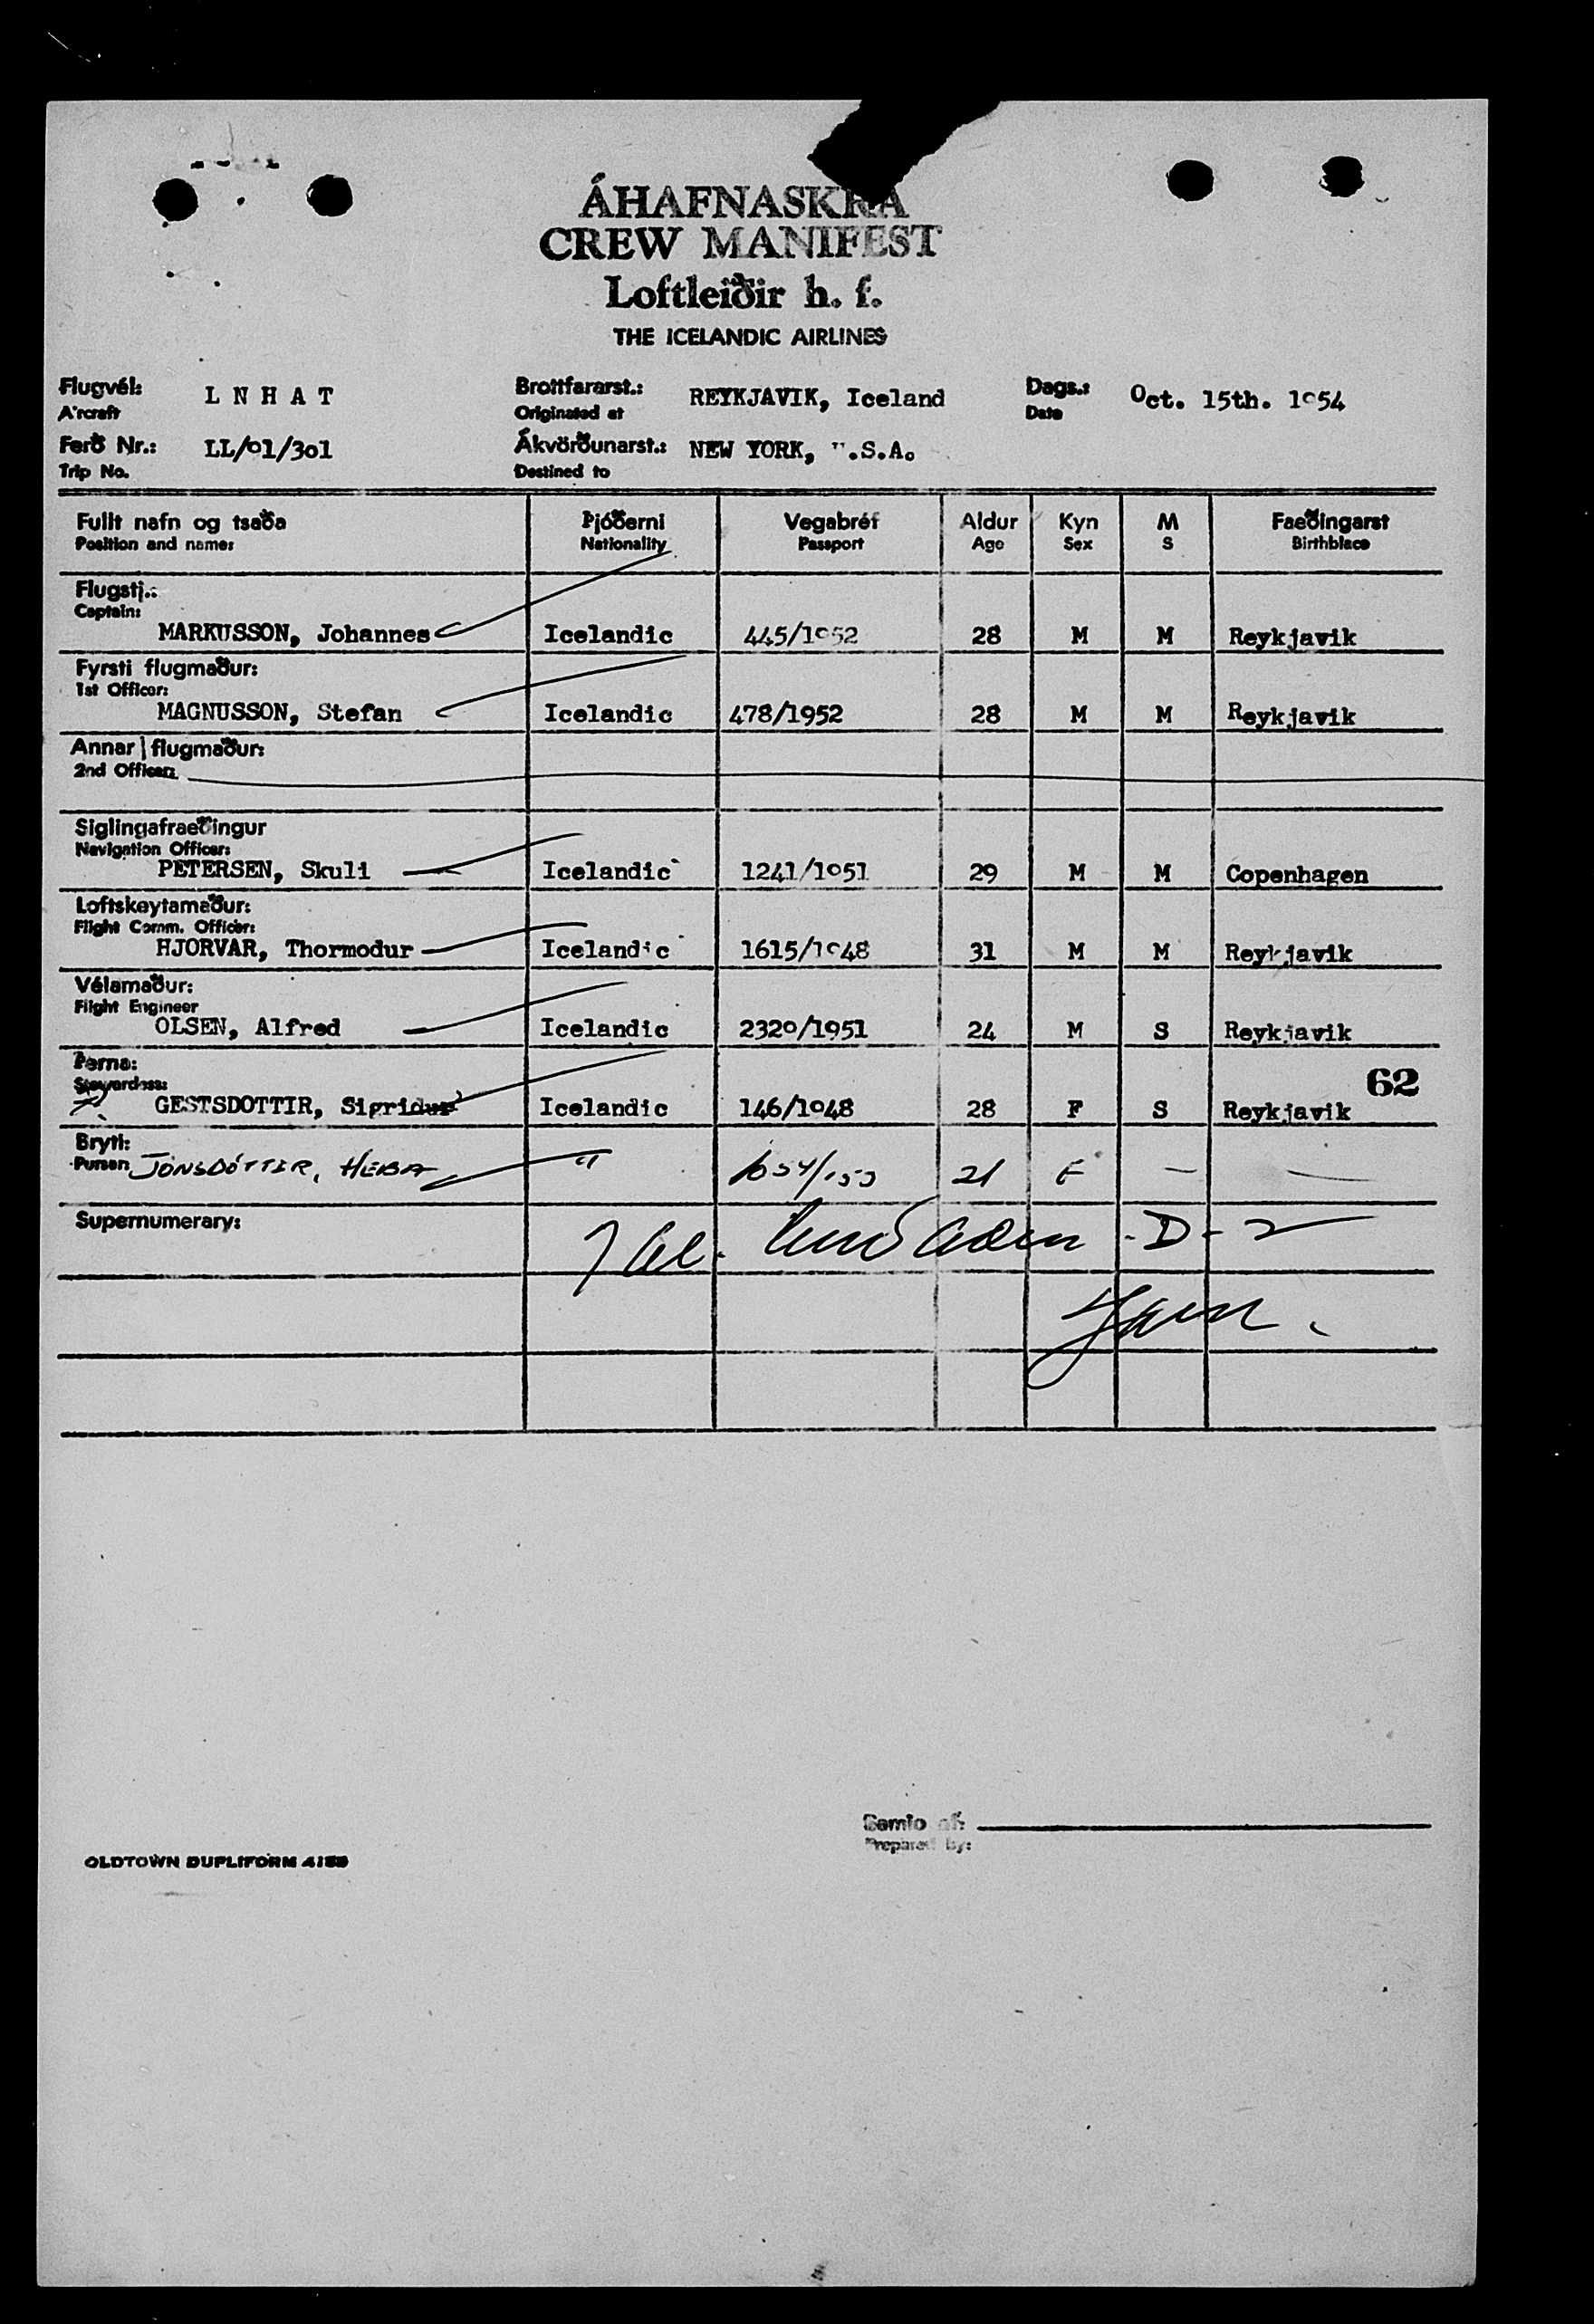 ÁHAFNASKRÁ
CREW MANIFEST
Loftleiðir h. f.
THE ICELANDIC AIRLINES
Flugvél: L N H A T Brottfararst.: REYKJAVIK, Iceland Dags.: Oct. 15th. 1954
Aircraft Originated at Date
Ferð Nr.: LL/01/301 Ákvörðunarst.: NEW YORK, U.S.A.
Trip No. Destined to
Fullt nafn og tsaða Þjóðerni Vegabréf Aldur Kyn M Faeðingarst
Position and name: Nationality Passport Age Sex S Birthblace
Flugstj.:
Captain:
MARKUSSON, Johannes Icelandic 445/1952 28 M M Reykjavik
Fyrsti flugmaður:
1st Officer:
MAGNUSSON, Stefan Icelandic 478/1952 28 M M Reykjavik
Annar flugmaður:
2nd Officer:
Siglingafraeðingur
Navigation Officer:
PETERSEN, Skuli Icelandic 1241/1951 29 M M Copenhagen
Loftskeytamaður:
Flight Comm. Officer:
HJORVAR, Thormodur Icelandic 1615/1948 31 M M Reykjavik
Vélamaður:
Flight Engineer
OLSEN, Alfred Icelandic 2320/1951 24 M S Reykjavik
Þerna:
Stewardess: 62
GESTSDOTTIR, Sigridur Icelandic 146/1948 28 F S Reykjavik
Bryti:
Purser JÓNSDÓTTIR, HEBA " 21 F — —
Supernumerary: 7 - D - 2
Samið af:
Prepared by:
OLDTOWN DUPLIFORM